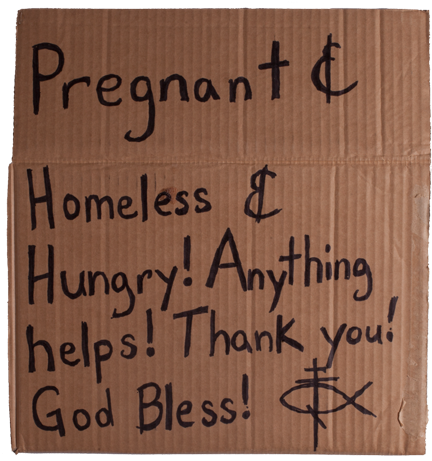 Pregnant &
Homeless &
Hungry! Anything
helps! Thank you!
God Bless!